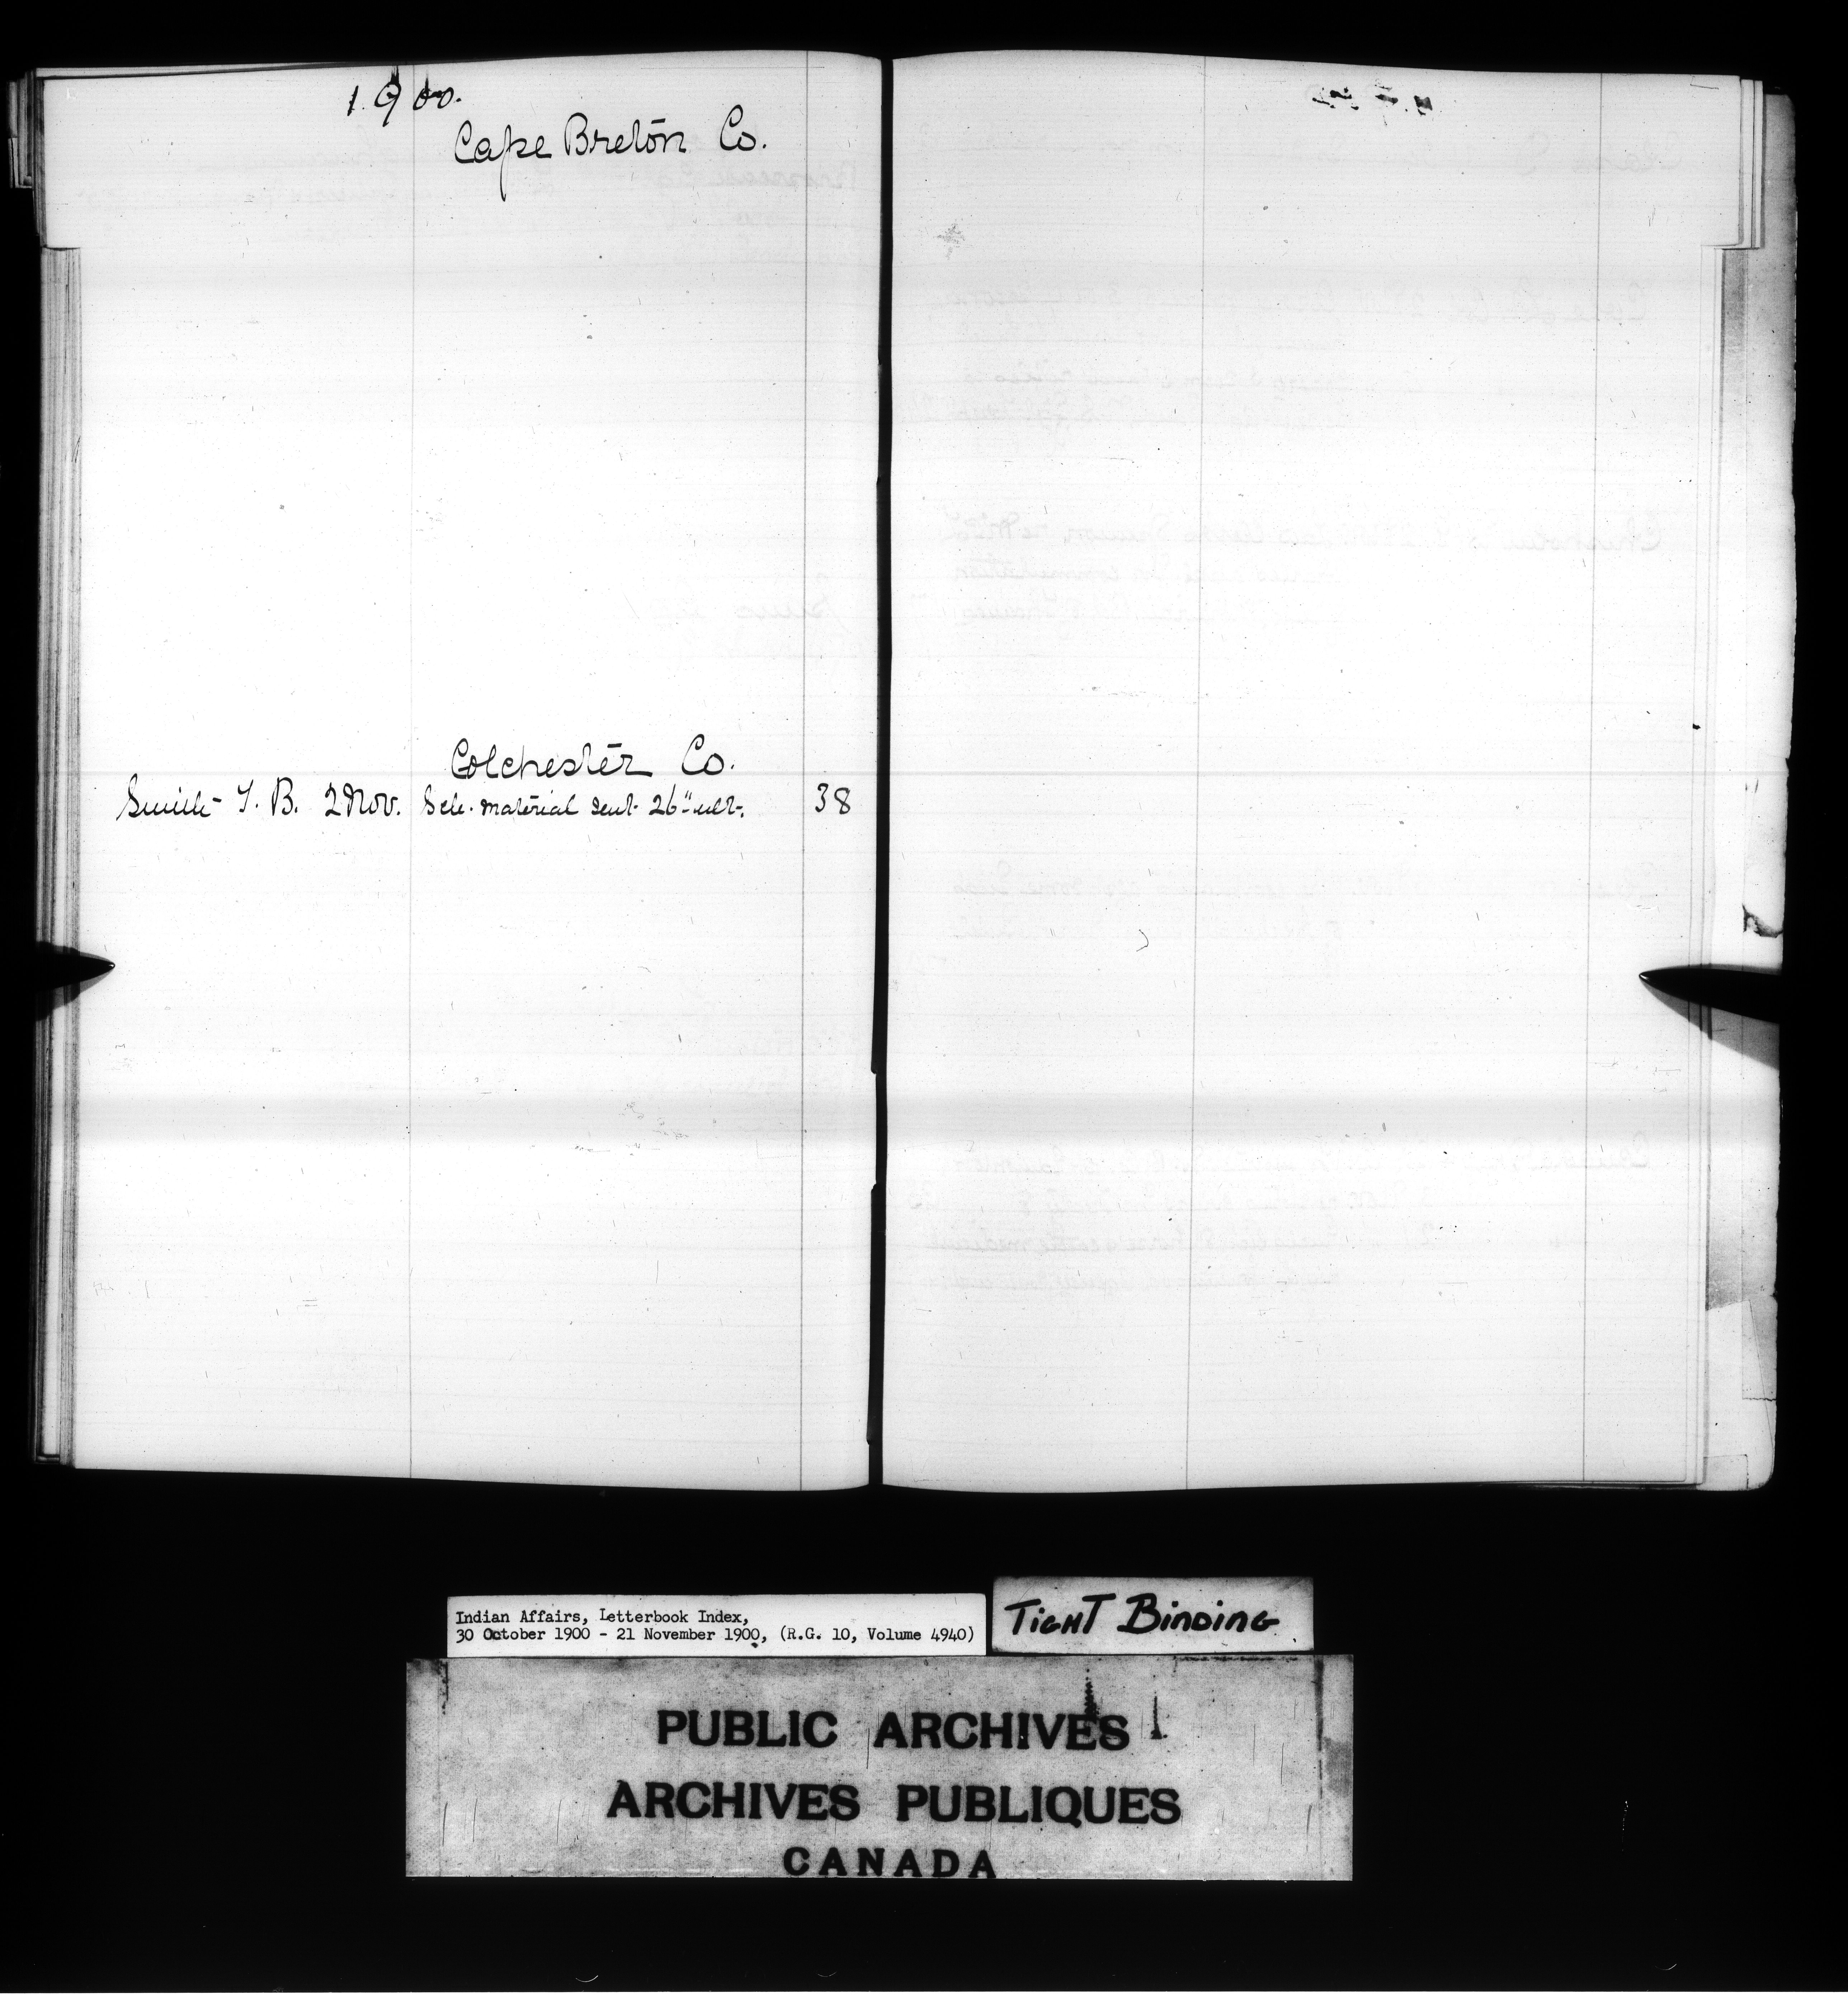 1900.
Cape Breton Co.
Colchester Co.
Smith T. B. 2 Nov. Sch. material sent 26" ult. 38
Indian Affairs, Letterbook Index,
30 October 1900 - 21 November 1900, (R.G. 10, Volume 4940)
TIGHT BINDING
PUBLIC ARCHIVES
ARCHIVES PUBLIQUES
CANADA